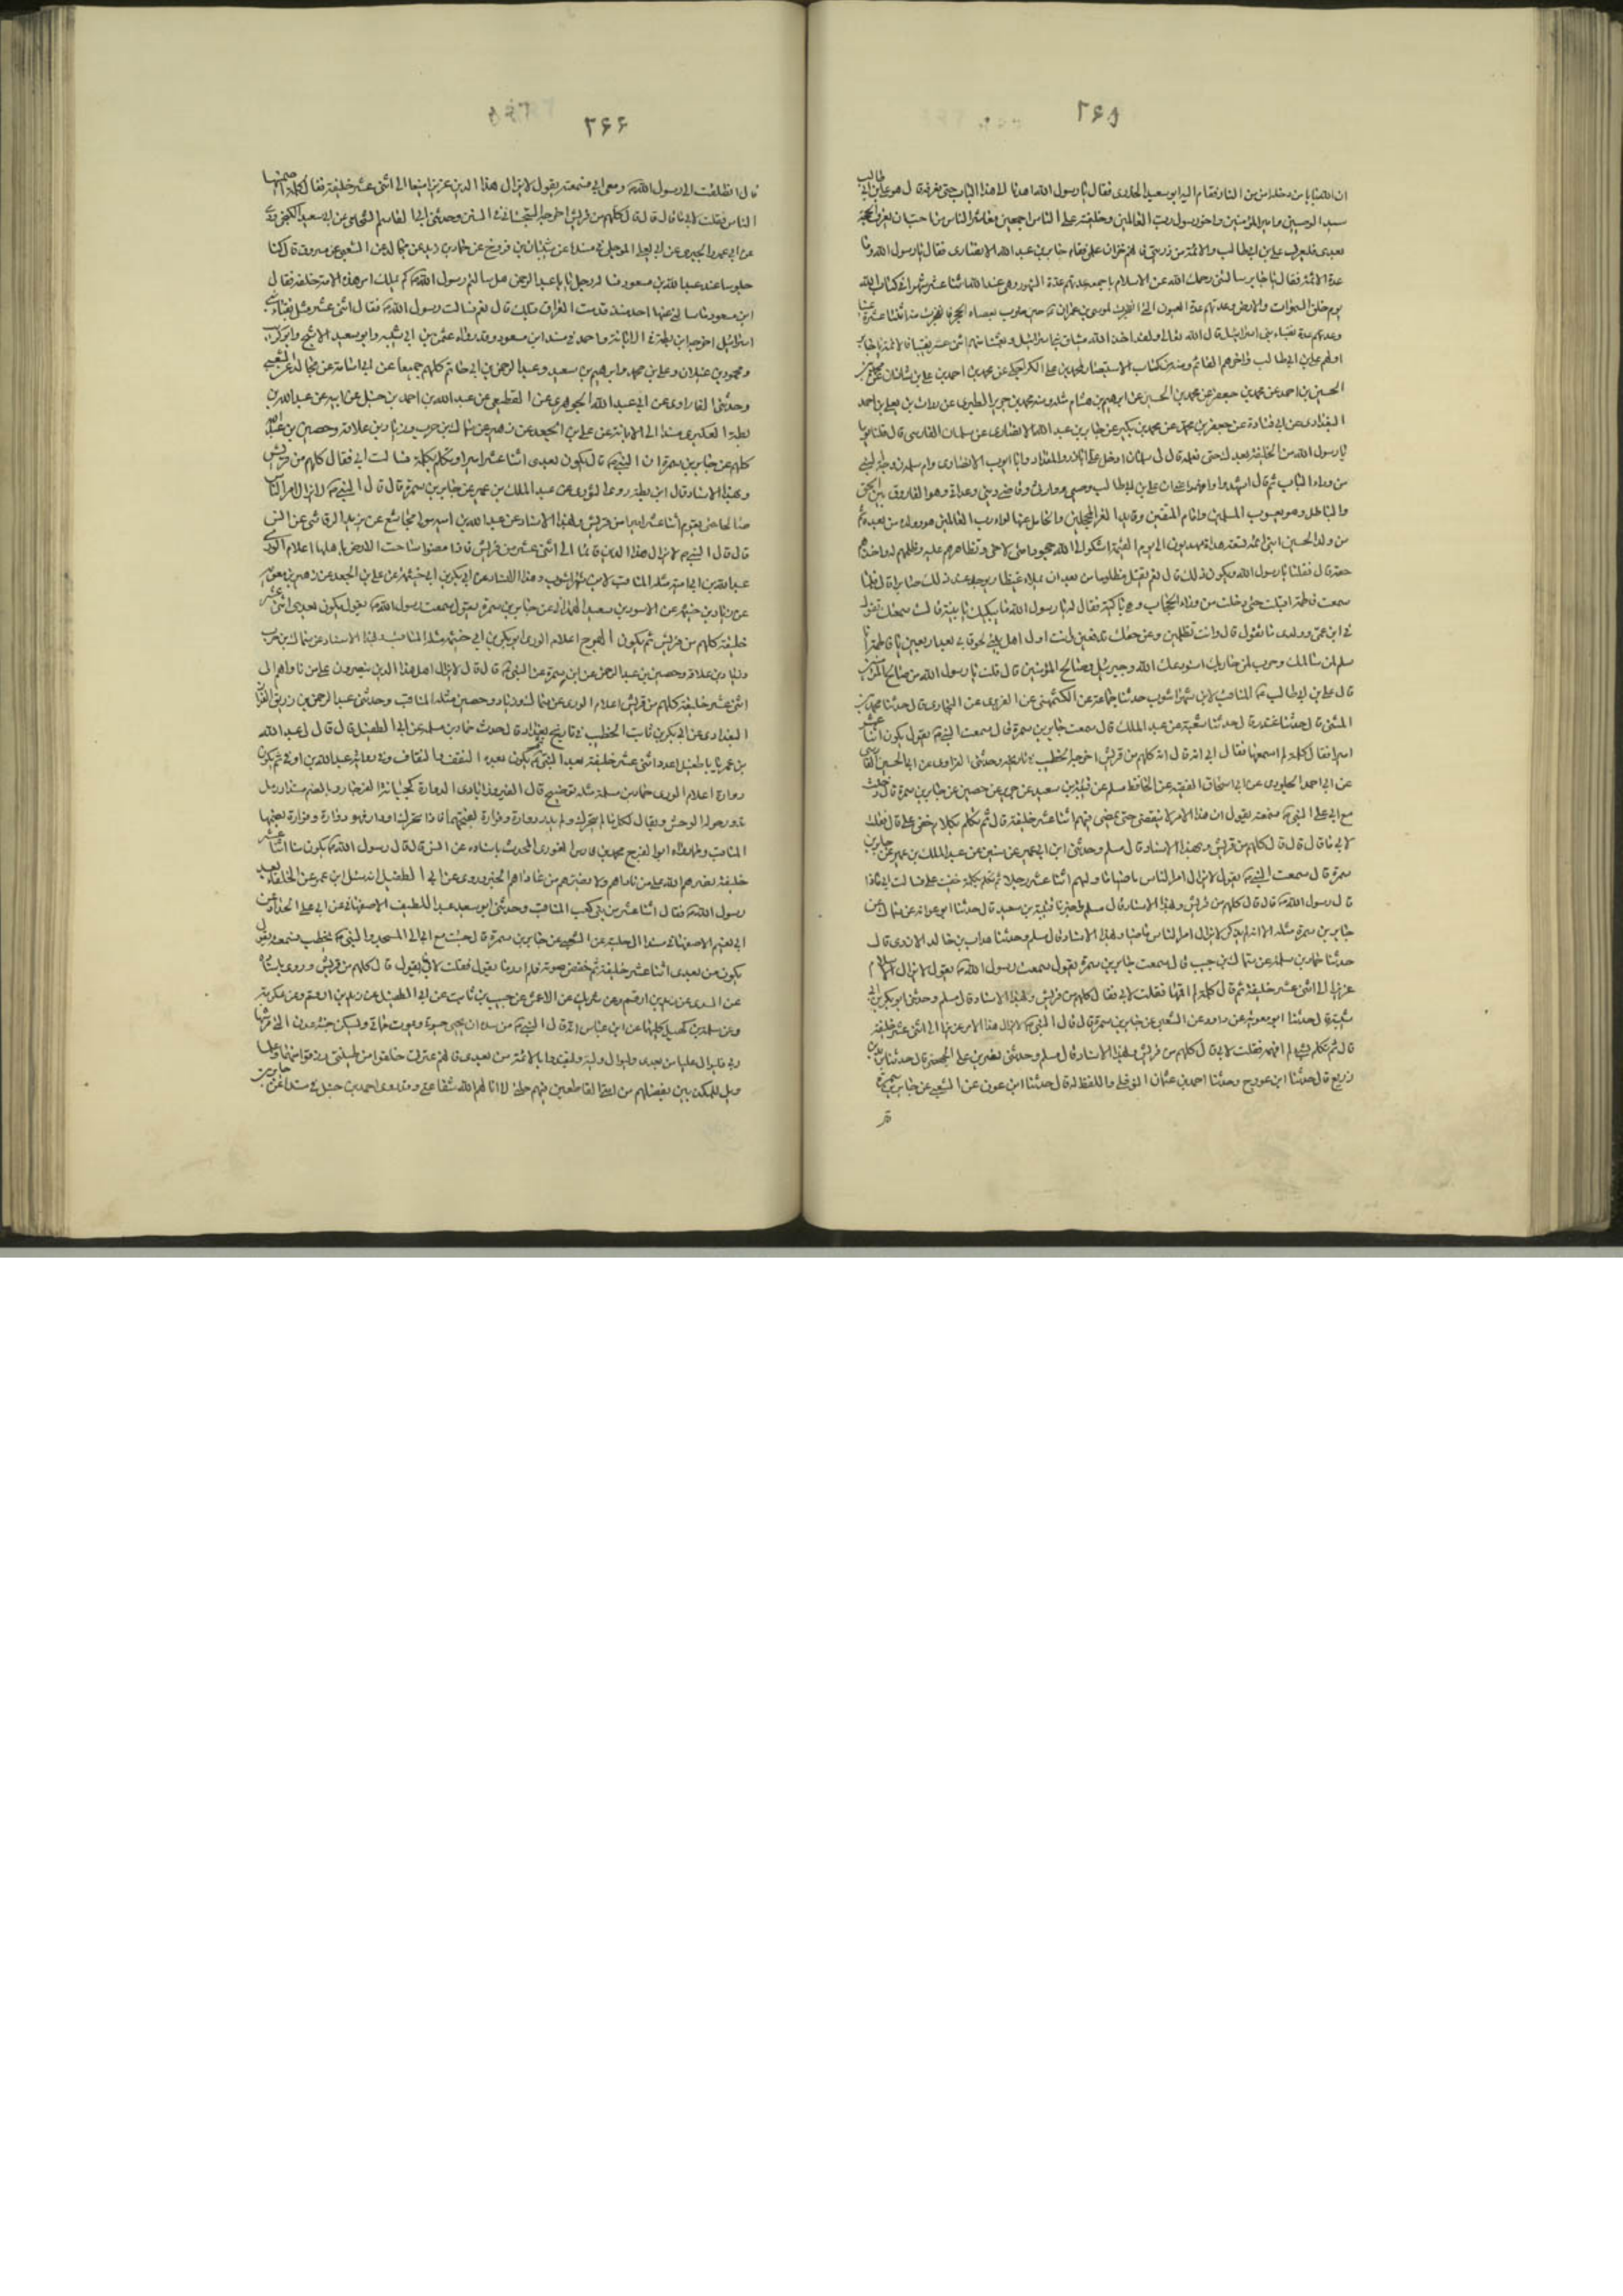 ٢۶۵
طالب
ان الله بابا من دخله امن من النار فقام اليه ابو سعيد الخدرى فقال يا رسول الله اهدنا لهذا الباب حتى نعرفه قال هو على بن ابى
سيد الوصيين وامير المؤمنين واخو رسول رب العالمين وخليفته على الناس اجمعين معاشر الناس من احب ان يعرف الحجة
بعدى فليعرف على بن ابيطالب والائمة من ذريتى فانهم خزان علمى فقام جابر بن عبد الله الانصارى فقال يا رسول الله وما
عدة الائمة فقال يا جابر سالتنى رحمك الله عن الاسلام باجمعه عدتهم عدة الشهور وهى عند الله اثنا عشر شهرا فى كتاب الله
يوم خلق السموات والارض وعدتهم عدة العيون التى انفجرت لموسى بن عمران حين ضرب بعصاه الحجر فانفجرت منه اثنتا عشرة عينا
وعدتهم عدة نقباء بنى اسرائيل قال الله تعالى ولقد اخذ الله ميثاق بنى اسرائيل وبعثنا منهم اثنى عشر نقيبا فالائمة يا جابر
اولهم على بن ابيطالب واخرهم القائم ومنه من كتاب الاستبصار محمد بن على الكراجكى عن محمد بن احمد بن على بن شاذان عن
الحسين بن احمد عن محمد بن جعفر عن محمد بن الحسين عن ابرهيم بن هشام مثله ومنه محمد بن جرير الطبرى عن
البغدادى عن ابى قتادة عن جعفر بن محمد عن محمد بن بكير عن جابر بن عبد الله الانصارى عن سلمان الفارسى قال قلنا يوما
يا رسول الله من الخليفة بعدك حتى نعلمه قال لى يا سلمان ادخل على ابا ذر والمقداد وابا ايوب الانصارى وام سلمة زوجة النبى
من وراء الباب ثم قال اشهدوا وافهموا عنى ان على بن ابيطالب وصيى ووارثى وقاضى دينى وعداتى وهو الفاروق بين الحق
والباطل وهو يعسوب المسلمين وامام المتقين وقايد الغر المحجلين والحامل غدا لواء رب العالمين هو وولده من بعده ثم
من ولد الحسين ابنى ائمة تسعة هداة مهديون الى يوم القيمة اشكو الى الله جحود امتى لاخى وتظاهرهم عليه وظلمهم له واخذهم
حقه قال فقلنا يا رسول الله ويكون ذلك قال نعم يقتل مظلوما من بعد ان يملاء غيظا ويوجد عند ذلك صابرا قال فلما
سمعت فاطمة اقبلت حتى دخلت من وراء الحجاب وهى باكية فقال لها رسول الله ما يبكيك يا بنية قالت سمعتك تقول
فى ابن عمى وولدى ما تقول قال وانت تظلمين وعن حقك تدفعين وانت اول اهل بيتى لحوقا بى بعد اربعين يا فاطمة انا
سلم لمن سالمك وحرب لمن حاربك استودعك الله وجبرئيل وصالح المؤمنين قال قلت يا رسول الله من صالح المؤمنين
قال على بن ابيطالب المناقب لابن شهراشوب حدثنا جماعة عن الكشميهنى عن الفربرى عن البخارى قال حدثنا محمد بن
المثنى قال حدثنا غندر قال حدثنا شعبة عن عبد الملك قال سمعت جابر بن سمرة قال سمعت النبى يقول يكون اثنا عشر
اميرا فقال كلمة لم اسمعها فقال ابى انه قال انه كلهم من قريش اخرجه الخطيب وحدثنى الفراوى عن ابى الحسين الفارسى
عن ابى احمد الجلودى عن ابى اسحاق الفقيه عن الحافظ مسلم عن قتيبة بن سعيد عن جرير عن حصين عن جابر بن سمرة قال دخلت
مع ابى على النبى فسمعته يقول ان هذا الامر لا ينقضى حتى يمضى فيهم اثنا عشر خليفة قال ثم تكلم بكلام خفى على قال فقلت
لابى ما قال قال قال كلهم من قريش وبهذا الاسناد قال مسلم وحدثنى ابن ابى عمير عن سفين عن عبد الملك بن عمير عن جابر بن
سمرة قال سمعت النبى يقول لا يزال امر الناس ماضيا ما وليهم اثنا عشر رجلا ثم تكلم بكلمة خفيت على فسالت ابى ماذا
قال رسول الله قال قال كلهم من قريش وبهذا الاسناد قال مسلم قتيبة بن سعيد قال حدثنا ابو عوانة عن سماك عن
جابر بن سمرة مثله الا انه لم يذكر لا يزال امر الناس ماضيا وبهذا الاسناد قال مسلم وحدثنا هداب بن خالد الازدى قال
حدثنا حماد بن سلمة عن سماك بن حرب قال سمعت جابر بن سمرة يقول سمعت رسول الله يقول لا يزال الاسلام
عزيزا الى اثنى عشر خليفة ثم قال كلمة لم افهمها فقلت لابى فقال كلهم من قريش وبهذا الاسناد قال مسلم وحدثنى ابو بكر بن ابى
شيبة قال حدثنا ابو معوية عن داود عن الشعبى عن جابر بن سمرة قال قال النبى لا يزال هذا الامر عزيزا الى اثنى عشر خليفة
قال ثم تكلم بشئ لم افهمه فقلت لابى قال كلهم من قريش وبهذا الاسناد قال مسلم وحدثنى نصر بن على الجهضمى قال حدثنا يزيد بن
زريع قال حدثنا ابن عون ح وحدثنا احمد بن عثمان النوفلى واللفظ له قال حدثنا ابن عون عن الشعبى عن جابر بن سمرة
قال
٢۶۶
قال انطلقت الى رسول الله ومعى ابى فسمعته يقول لا يزال هذا الدين عزيزا منيعا الى اثنى عشر خليفة فقال كلمة صمنيها
الناس فقلت لابى ما قال قال قال كلهم من قريش اخرجه السجستانى فى السنن وحدثنى ابو القاسم الشحامى عن ابى سعيد الكنجرودى
عن ابى عمرو الحيرى عن ابى يعلى الموصلى فى مسنده عن شيبان بن فروخ عن حماد بن زيد عن مجالد عن الشعبى عن مسروق قال كنا
جلوسا عند عبد الله بن مسعود فسأله رجل يا ابا عبد الرحمن هل سالتم رسول الله كم يملك امر هذه الامة خليفة فقال
ابن مسعود ما سالنى عنها احد منذ قدمت العراق قبلك قال نعم سالت رسول الله فقال اثنى عشر مثل نقباء بنى
اسرائيل اخرجه ابن بطة فى الابانة واحمد فى مسند ابن مسعود وقد رواه عثمن بن ابى شيبه وابو سعيد الاشج وابو كريب
ومحمود بن غيلان وعلى بن محمد وابرهيم بن سعيد وعبد الرحمن بن ابى حاتم كلهم جميعا عن ابى اسامة عن مجالد عن الشعبى
وحدثنى الفراوى عن ابى عبد الله الجوهرى عن القطيعى عن عبد الله بن احمد بن حنبل عن ابيه عن عبد الله بن
بطة العكبرى مسندا الى الابانة عن على بن الجعد عن زهير عن سماك بن حرب وزياد بن علاقة وحصين بن عبد الرحمن
كلهم عن جابر بن سمرة ان النبى قال يكون بعدى اثنا عشر اميرا وتكلم بكلمة فسالت ابى فقال كلهم من قريش
وبهذا الاسناد قال ابن بطة روى عبد الملك بن عمير عن جابر بن سمرة قال قال النبى لا يزال امر الناس
صالحا حتى يقوم اثنا عشر اميرا من قريش وبهذا الاسناد عن عبد الله بن امية مولى مجاشع عن يزيد الرقاشى عن انس
قال قال النبى لا يزال هذا الدين قائما الى اثنى عشر من قريش فاذا مضوا ساخت الارض باهلها اعلام الورى
عبد الله بن ابى امية مثله المناقب لابن شهراشوب وبهذا الاسناد عن ابى بكر بن ابى خيثمة عن على بن الجعد عن زهير بن معوية
عن زياد بن خيثمة عن الاسود بن سعيد الهمدانى عن جابر بن سمرة يقول سمعت رسول الله يقول يكون بعدى اثنى عشر
خليفة كلهم من قريش ثم يكون الهرج اعلام الورى ابو بكر بن ابى خيثمة مثله المناقب وبهذا الاسناد عن سماك بن حرب
وزياد بن علاقة وحصين بن عبد الرحمن عن ابن سمرة عن النبى قال قال لا يزال اهل هذا الدين ينصرون على من ناواهم الى
اثنى عشر خليفة كلهم من قريش اعلام الورى عن سماك وزياد وحصين مثله المناقب وحدثنى عبد الرحمن بن زريق القزاز
البغدادى عن ابى بكر بن ثابت الخطيب فى تاريخ بغداد قال حدث حماد بن سلمة عن ابى الطفيل قال قال لى عبد الله
بن عمر يا ابا طفيل اعدد اثنى عشر خليفة بعد النبى ثم يكون بعده النقف والنقاف وفى رواية عبد الله بن اوفى ثم يكون
دوارة اعلام الورى حماد بن سلمة مثله توضيح قال الفيروزابادى الدوارة
ويقال لكل ما لم يتحرك ولم يدر دوارة وفوارة بفتحهما فاذا تحرك او دار فهو دوارة وفوارة بضمها
المناقب ومما رواه ابو الفرج محمد بن فارس الغورى المحدث باسناده عن انس قال قال رسول الله يكون منا اثنا عشر
خليفة ينصرهم الله على من ناواهم ولا يضرهم من عاداهم الخبر وروى عن ابى الطفيل انه سئل ابن عمر عن الخلفاء بعد
رسول الله فقال اثنا عشر من بنى كعب المناقب وحدثنى ابو سعيد عبد اللطيف الاصفهانى عن ابى على الحداد عن
ابى نعيم الاصفهانى مسندا الى حلية عن الشعبى عن جابر بن سمرة قال جئت مع ابى الى المسجد والنبى يخطب فسمعته يقول
يكون من بعدى اثنا عشر خليفة ثم خفض صوته فلم ادر ما يقول فقلت لابى ما يقول قال كلهم من قريش وروى باسناده
عن السدى عن زيد بن ارقم وعن شريك عن الاعمش عن حبيب بن ثابت عن ابى الطفيل عن زيد بن ارقم وعن عكرمة
وعن سلمة بن كهيل كليهما عن ابن عباس انه قال النبى من سره ان يحيى حيوتى ويموت مماتى ويسكن جنة عدن التى غرسها
ربى فليوال عليا من بعدى وليوال وليه وليقتد بالائمة من بعدى فانهم عترتى خلقوا من طينتى رزقوا فهما وعلما
ويل للمكذبين بفضلهم من امتى القاطعين فيهم صلتى لا انالهم الله شفاعتى وقد روى احمد بن حنبل فى مسنده عن جابر بن